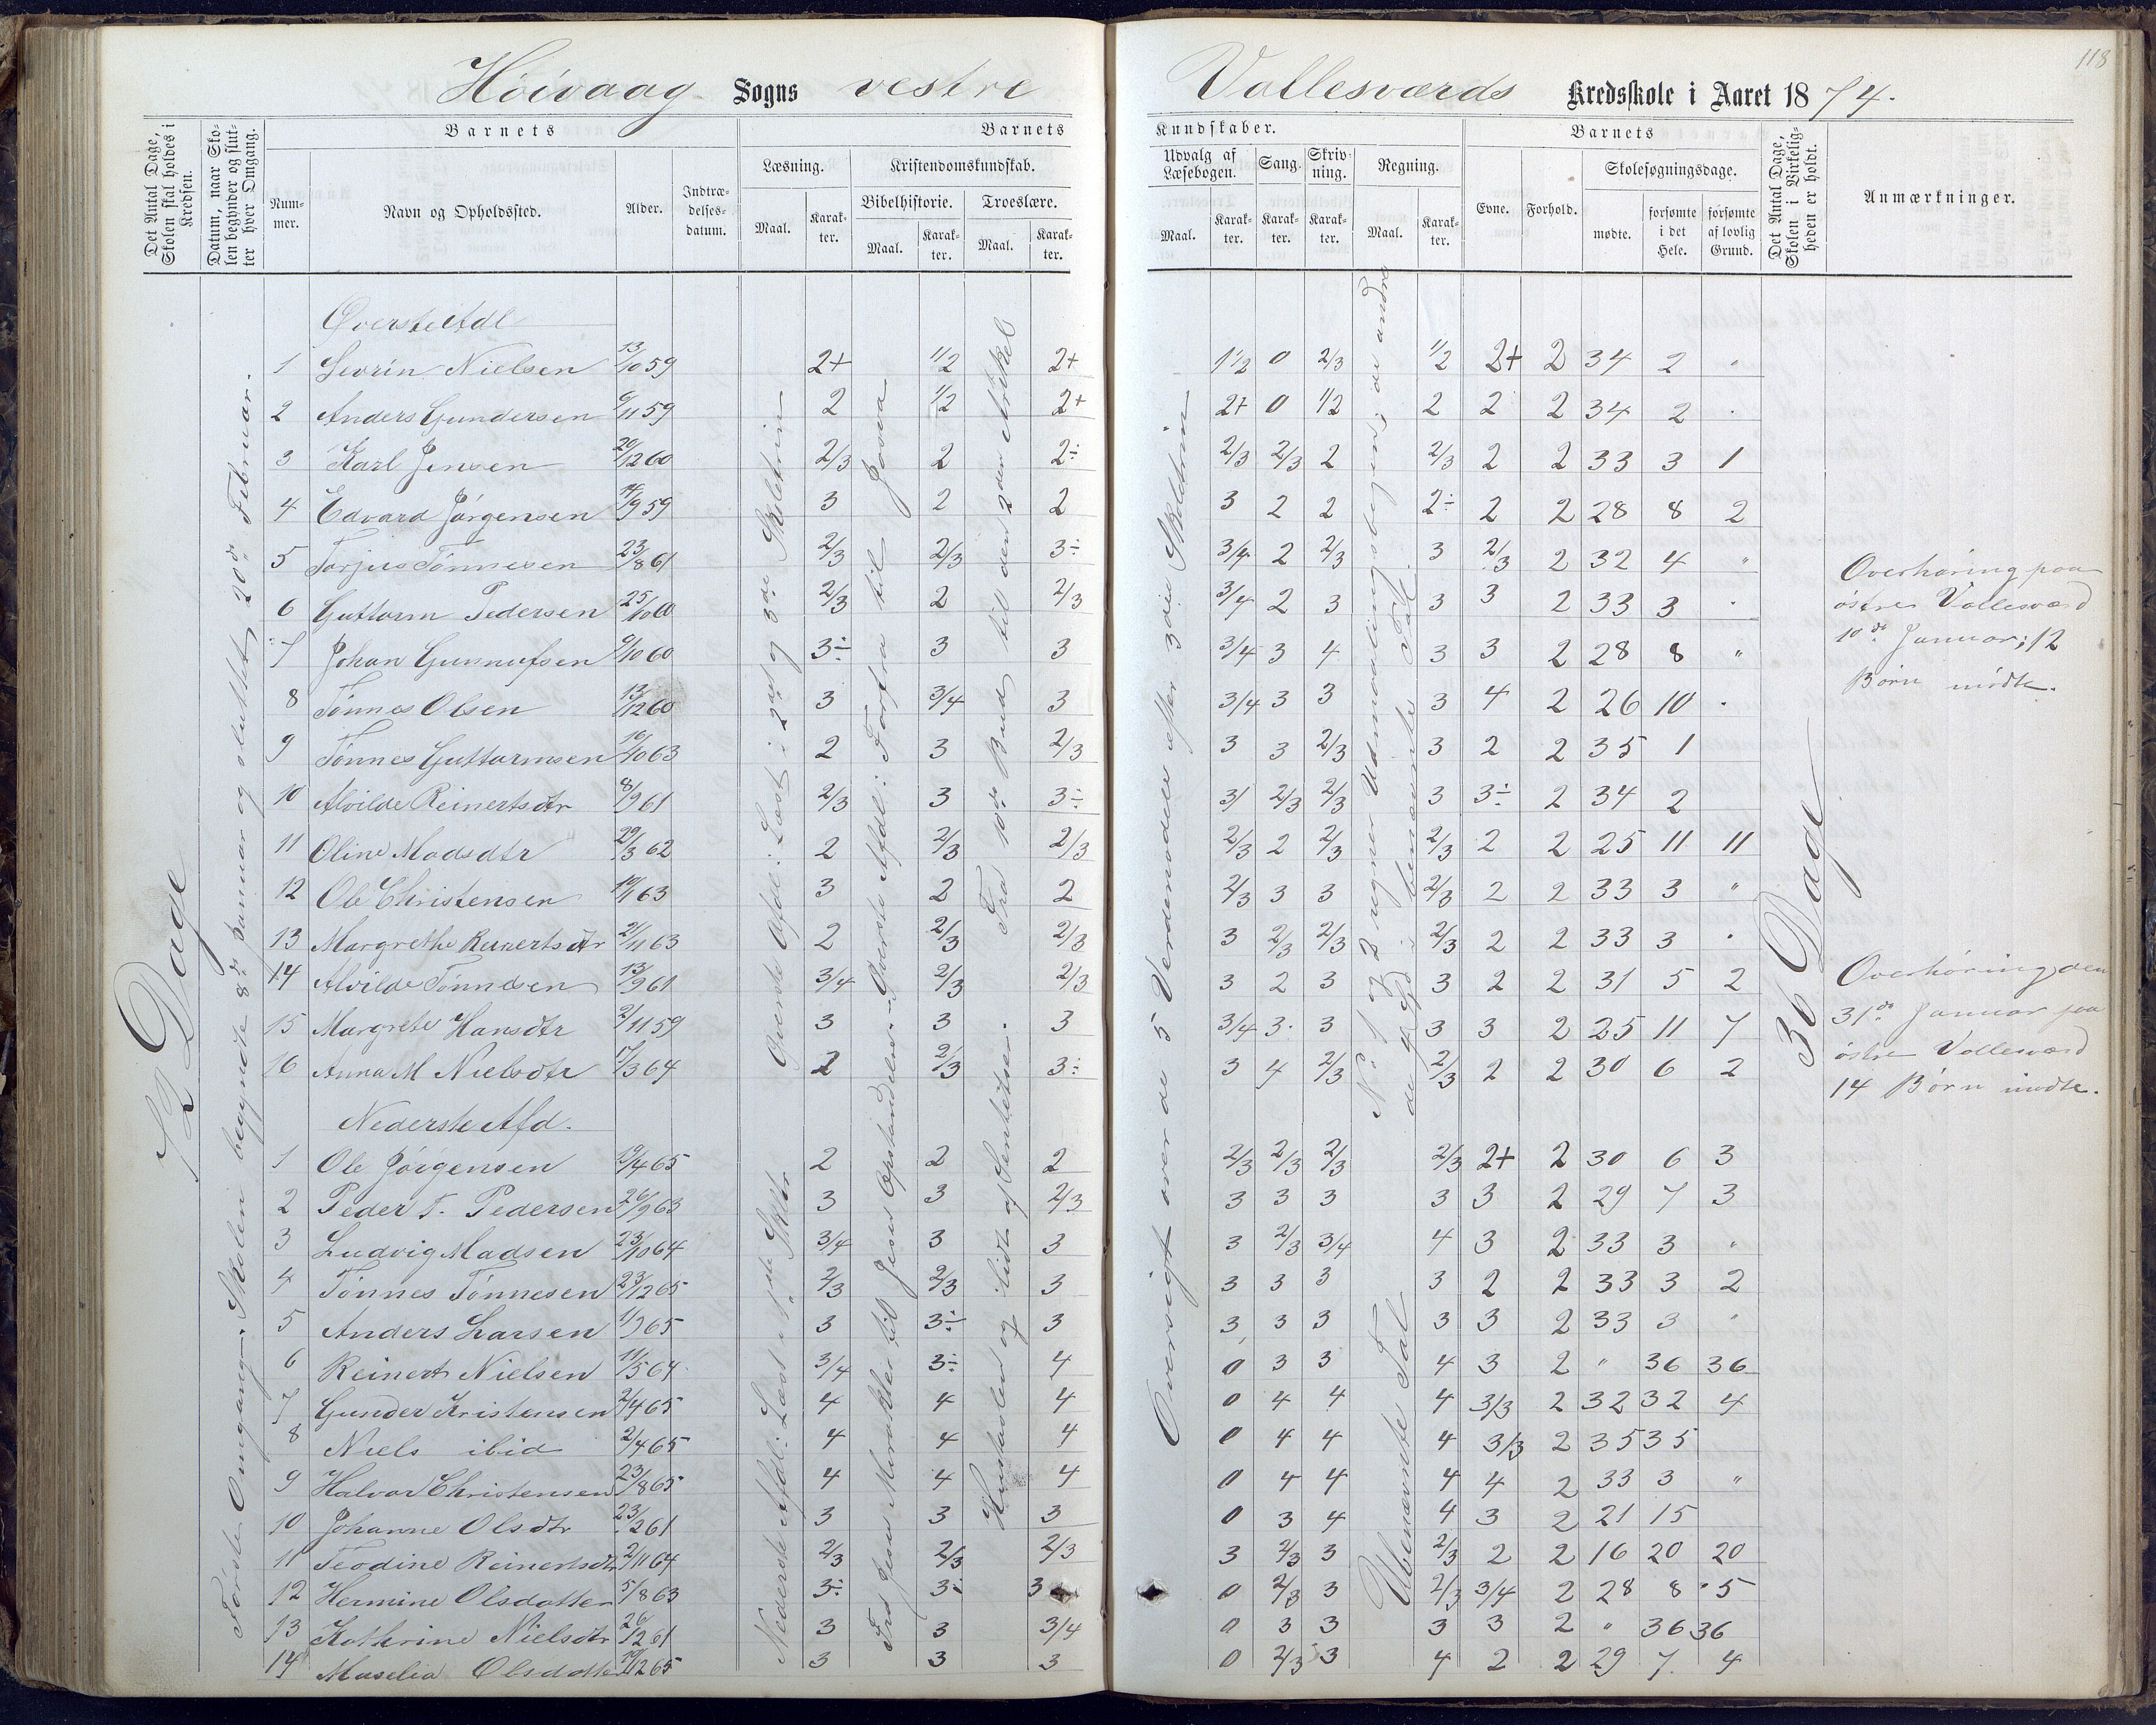 118
Höivaag Sogns vestre Vallesværds Kredsskole i Aaret 1874.
Det Antal Dage, Skolen skal holdes i Kredsen.
Datum, naar Skolen begynder og slutter hver Omgang.
Barnets
Nummer.
Navn og Opholdssted.
Alder.
Indtrædelsesdatum.
Barnets
Læsning.
Maal.
Karakter.
Kristendomskundskab.
Bibelhistorie.
Maal.
Karakter.
Troeslære.
Maal.
Karakter.
Kundskaber.
Udvalg af Læsebogen.
Maal.
Karakter.
Sang.
Karakter.
Skrivning.
Karakter.
Regning.
Maal.
Karakter.
Barnets
Evne.
Forhold.
Skolesøgningsdage.
mødte.
forsømte i det Hele.
forsømte af lovlig Grund.
Det Antal Dage, Skolen i Virkeligheden er holdt.
Anmærkninger.
72 Dage
Første Omgang. Skolen begyndte 8de Januar og sluttet 20de Februar.
Øverste Afdl
1 Sevrin Nielsen 13/10 59 2+ 1/2 2+ 1/2 0 2/3 1/2 2+ 2 34 2 "
2 Anders Gundersen 6/11 59 2 1/2 2+ 2+ 0 1/2 2 2 2 34 2 "
3 Karl Jensen 20/12 60 2/3 2 2÷ 2/3 2/3 2 2/3 2 2 33 3 1
4 Edvard Jørgensen 14/9 59 3 2 2 3 2 2 2÷ 2 2 28 8 2
5 Torjus Tønnesen 23/8 61 2/3 2/3 3÷ 3/4 2 2/3 3 2/3 2 32 4 "
6 Guttorm Pedersen 25/10 60 2/3 2 2/3 3/4 2 3 3 3 2 33 3 "
7 Johan Gunnufsen 6/10 60 3÷ 3 3 3/4 3 4 3 3 2 28 8 "
8 Tønnes Olsen 13/12 60 3 3/4 3 3/4 3 3 3 4 2 26 10 "
9 Tønnes Guttormsen 10/10 63 2 3 2/3 3 3 2/3 3 2 2 35 1
10 Alvilde Reinertsdtr 8/9 61 2/3 3 3÷ 3/ 2/3 2/3 3 3÷ 2 34 2
11 Oline Madsdtr 29/3 62 2 2/3 2/3 2/3 2 2/3 2/3 2 2 25 11 11
12 Ole Christensen 19/1 63 3 2 2 2/3 3 3 2/3 2 2 33 3 "
13 Margrethe Reinertsdtr 21/11 63 2 2/3 2/3 3 2/3 2/3 2/3 2 2 33 3 "
14 Alvilde Tønnesen 13/9 61 3/4 2/3 2/3 3 2 3 3 2 2 31 5 2
15 Margrete Hansdtr 2/11 59 3 3 3 3/4 3 3 3 3 2 25 11 7
16 Anna M Nielsdtr 17/3 64 2 2/3 3÷ 3 4 2/3 2/3 2 2 30 6 2
Nederste Afd.
1 Ole Jörgensen 19/4 65 2 2 2 2/3 2/3 2/3 2/3 2+ 2 30 6 3
2 Peder T. Pedersen 26/9 63 3 3 2/3 3 3 3 3 3 2 29 7 3
3 Ludvig Madsen 23/10 64 3/4 3 3 3 2/3 3/4 4 3 2 33 3 "
4 Tönnes Tönnesen 23/12 65 2/3 2/3 3 3 3 3 3 2 2 33 3 2
5 Anders Larsen 1/9 65 3 3÷ 3 3 3 3 3 3 2 33 3 "
6 Reinert Nielsen 11/5 64 3/4 3÷ 4 0 3 3 4 3 2 " 36 36
7 Gunder Kristensen 2/4 65 4 4 4 0 4 4 4 3/3 2 32 32 4
8 Niels ibid 2/4 65 4 4 4 0 4 4 4 3/3 2 35 35
9 Halvor Christensen 23/8 65 4 4 4 0 4 4 4 4 2 33 3 "
10 Johanne Olsdtr 23/2 61 3 3 3 0 3 4 4 3 2 21 15
11 Teodine Reinertsdtr 2/11 64 2/3 2/3 2/3 3 2/3 3 2/3 2 2 16 20 20
12 Hermine Olsdatter 5/8 63 3÷ 3÷ 3 0 2/3 3 2/3 3/4 2 28 8 5
13 Kathrine Nielsdtr 26/12 61 3 3 3/4 0 3 3 3 3 2 " 36 36
14 Olsdatter 65 3 3 3 0 2/3 3 4 2 2 29 7 4
Øverste Afdl: Læst i 2det og 3die Skoletrin
Nederste Afdl: Læst i 1ste Skoletr.
Øverste Afdl: Forfra til Josva
Fra Jesu Mirakler til Jesu Opstandelse
Fra 10de Bud til den 2den Artikel
Huustavlen og lidt af Sentetser.
Oversigt over de 5 Verdensdele efter 3die Skoletrin
No 1 og 2 regner Udenvalingsbogen; de andre de 4 Gd. i benævnte Tal.
Ubenævnte Tal
36 Dage
Overhøring paa
østre Vallesværd
10de Januar; 12
Børn mødte.
Overhøring den
31de Januar paa
østre Vallesværd
14 Børn mødte.